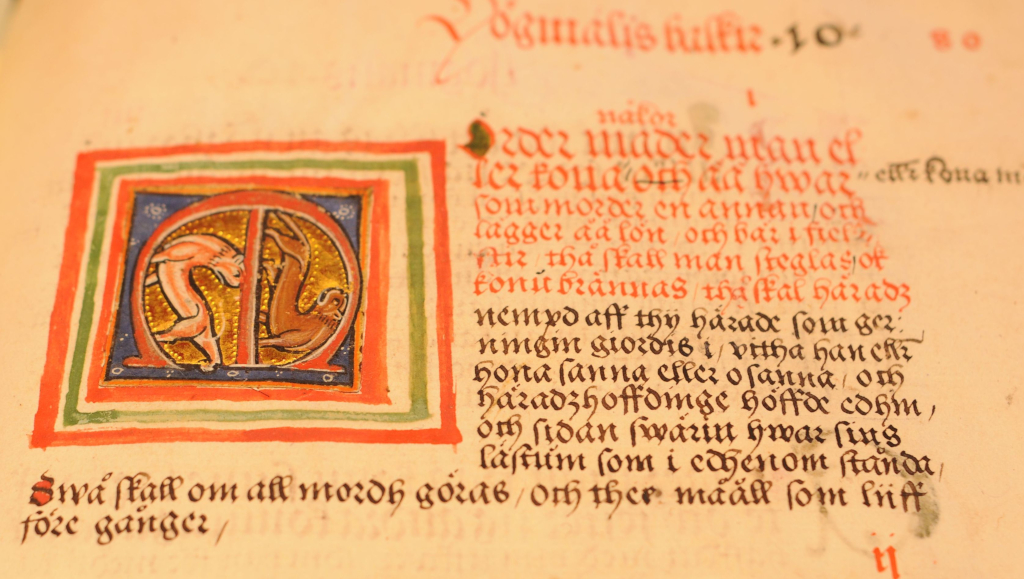 Högmälis balkir ·10· 80
i
näkor
Mrder mader man el
ler kona och ää hwar eller kona m
som mörder en annan, och
lägger åå lön, och bär i fiel
stir, thå skall man steglas, ok
konu brännas, thå skal häradz
nempd aff thy härade som ger:
ningin giordis i, vittha han ellr
hona sanna eller osanna, och
häradzhöffdinge höffde edhin,
och sidan swäriu hwar sins
låstum som i edhenom stånda,
Swå skall om all mordh göras, och thee määll som liiff
före gånger,
ij